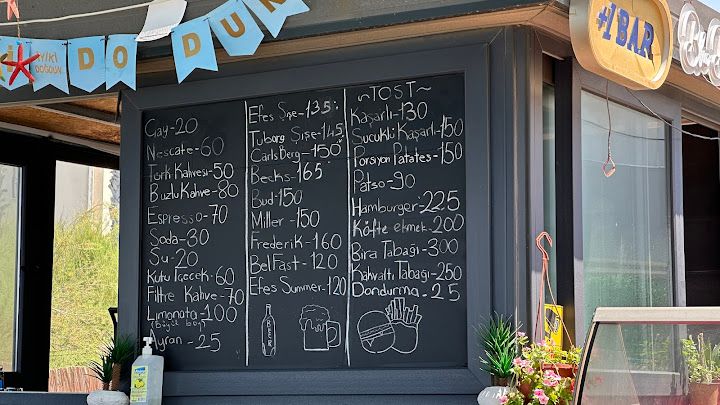 İYİKİ
DOĞDUN
DO
DUN
+1 BAR
Çay-20
Nescafe-60
Türk Kahvesi-50
Buzlu Kahve-80
Espresso-70
Soda-30
Su-20
Kutu İçecek-60
Filtre Kahve-70
Limonata-100
(Büyük boy)
Ayran-25
Efes Şişe-135
Tuborg Şişe-145
Carlsberg-150
Becks-165
Bud-150
Miller-150
Frederik-160
BelFast-120
Efes Summer-120
BEER
~TOST~
Kaşarlı-130
Sucuklu Kaşarlı-150
Porsiyon Patates-150
Patso-90
Hamburger-225
Köfte ekmek-200
Bira Tabağı-300
Kahvaltı Tabağı-250
Dondurma-25